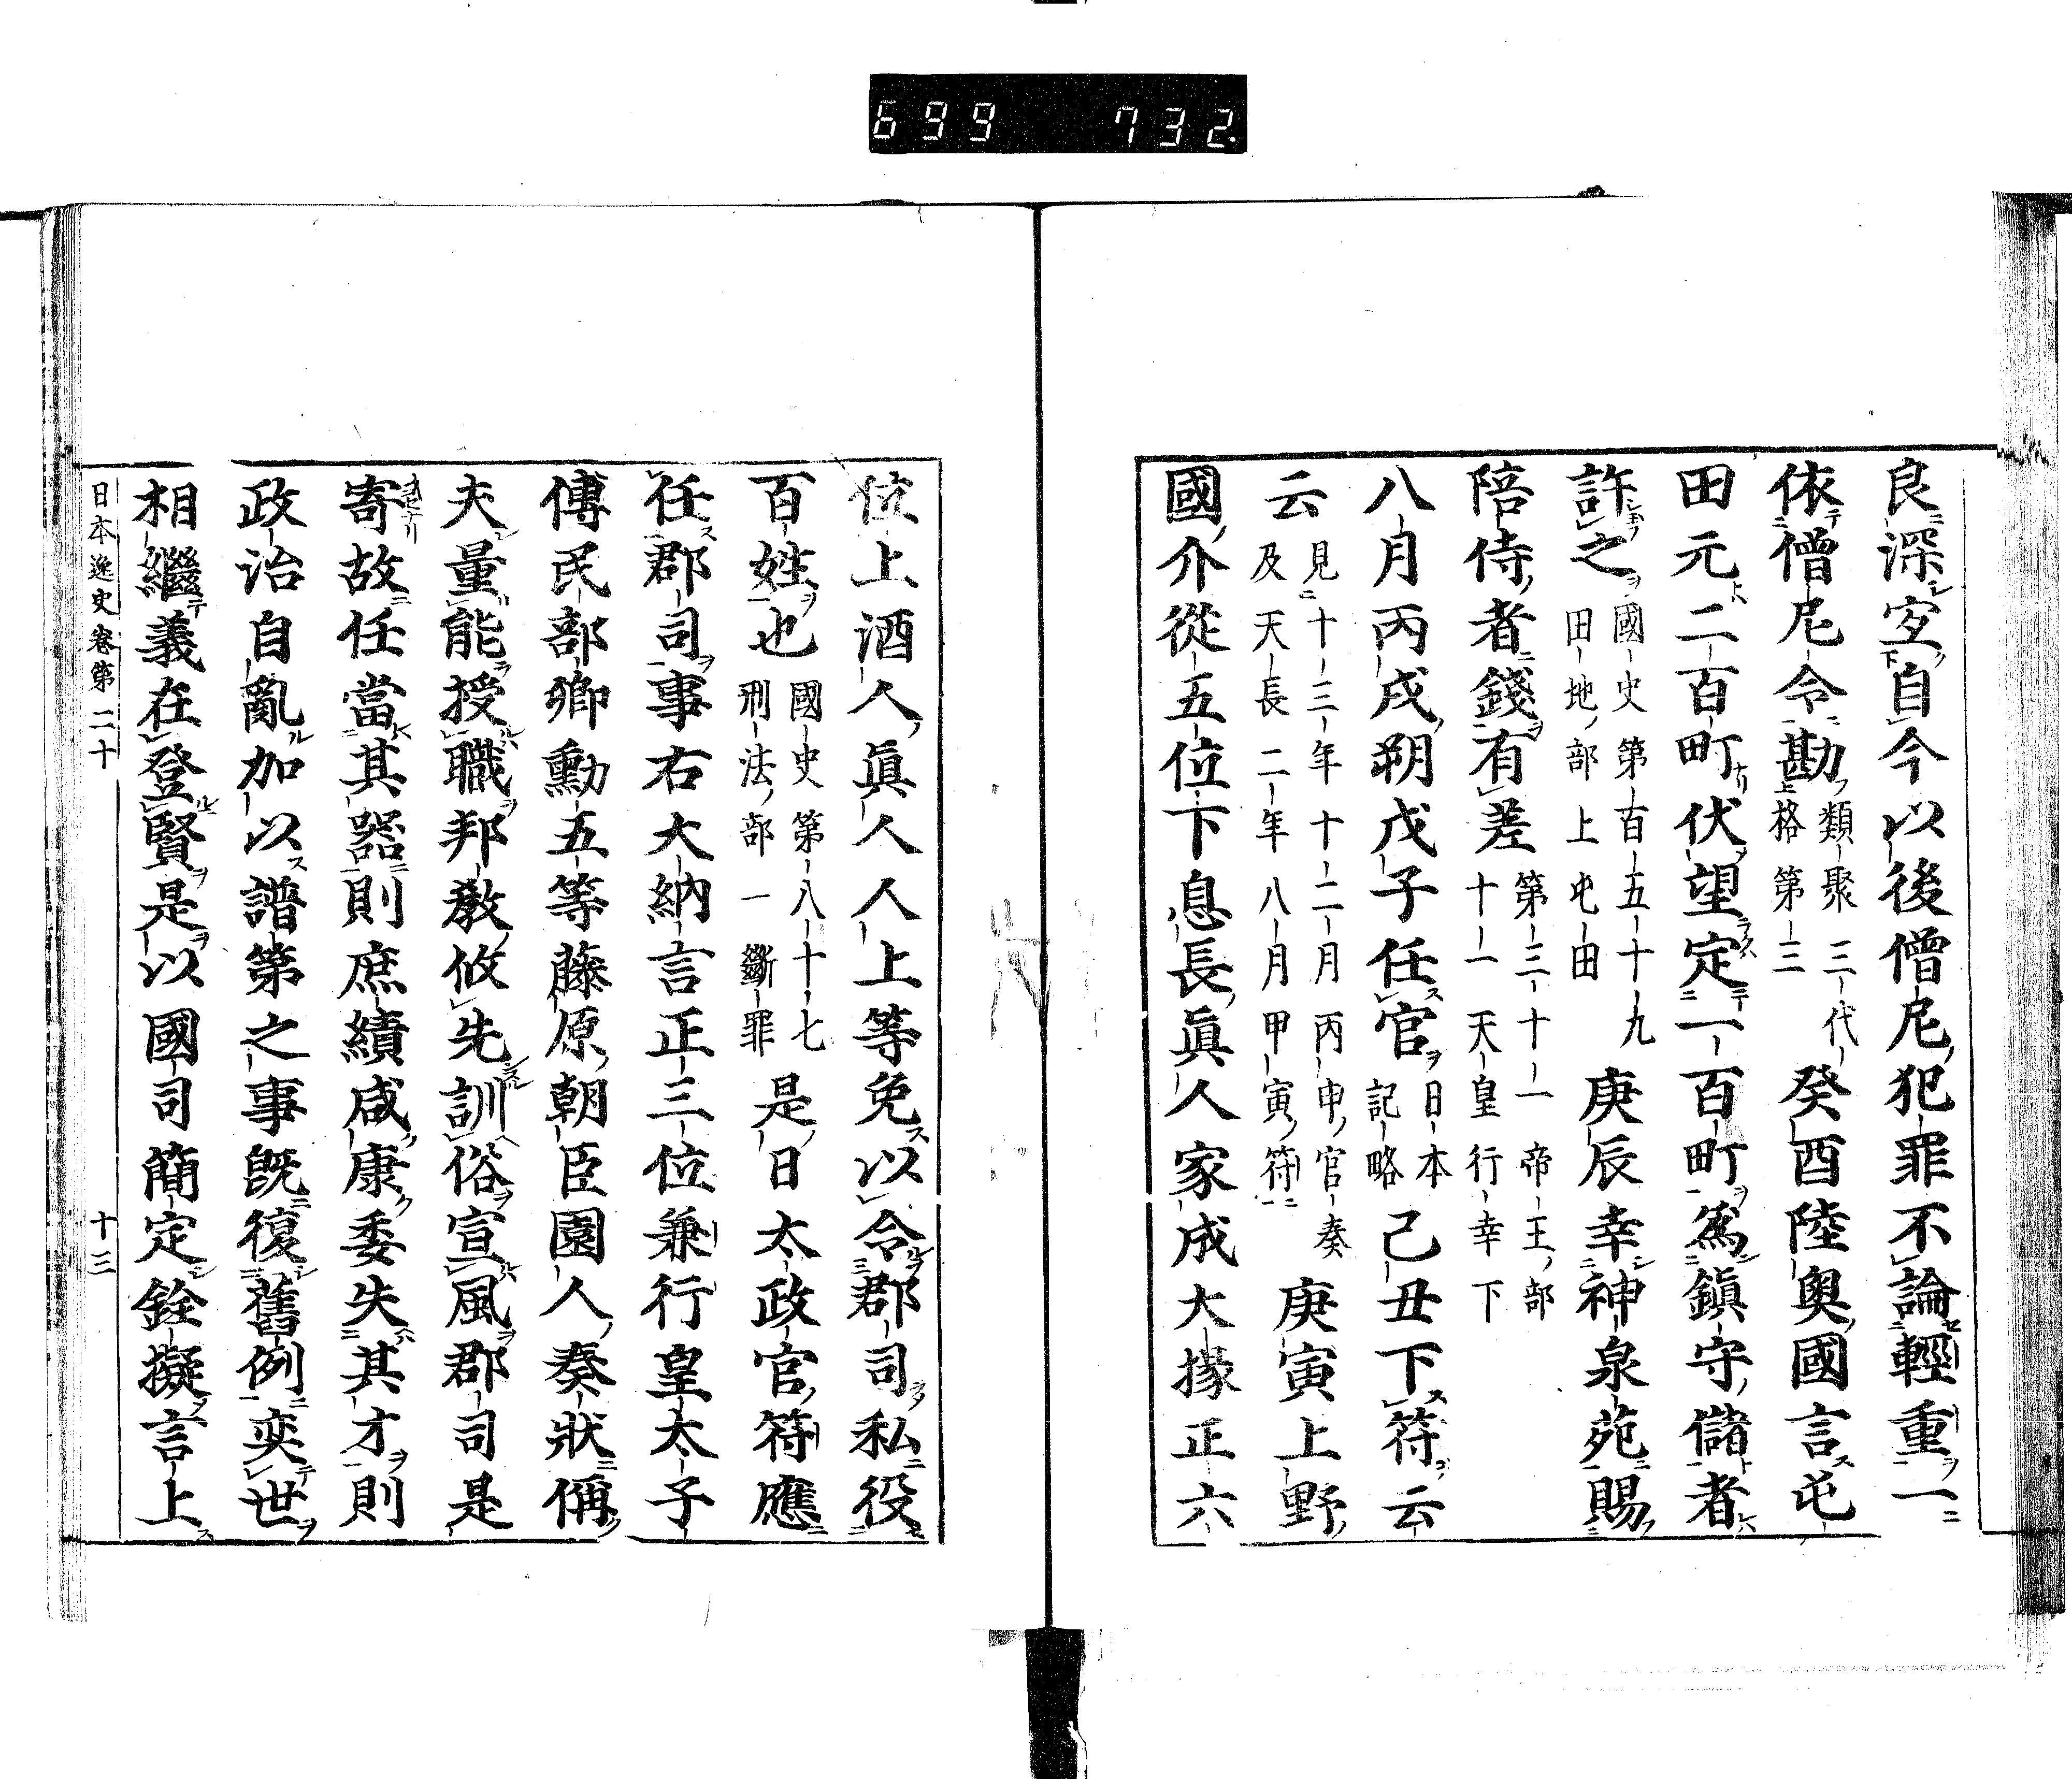 699 732.
良深寔自今以後僧尼犯罪不論輕重一
依僧尼令勘類聚三代格第三癸酉陸奧國言屯
田元二百町伏望定一百町爲鎭守儲者
許之國史第百五十九田地部上屯田庚辰幸神泉苑賜
陪侍者錢有差第三十一帝王部十一天皇行幸下
八月丙戌朔戊子任官日本記略己丑下符云
云見十三年十二月丙申官奏及天長二年八月甲寅符庚寅上野
國介從五位下息長眞人家成大掾正六
位上酒人眞人人上等免以合郡司私役
百姓也國史第八十七刑法部一斷罪是日太政官符應
任郡司事右大納言正三位兼行皇太子
傅民部卿勳五等藤原朝臣園人奏狀偁
夫量能授職邦敎攸先訓俗宣風郡司是
寄故任當其器則庶績咸康委失其才則
政治自亂加以譜第之事旣復舊例奕世
相繼義在登賢是以國司簡定銓擬言上
日本逸史卷第二十 十三